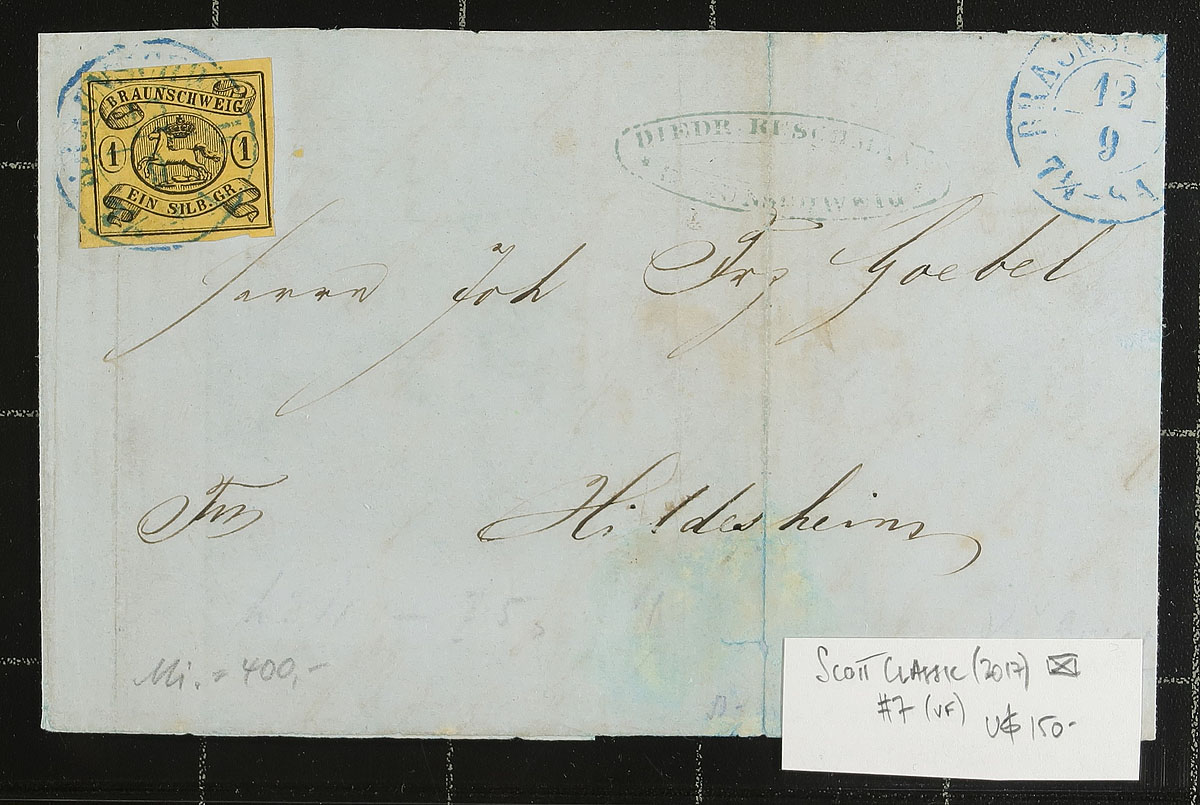 BRAUNSCHWEIG
1 1
EIN SILB. GR.
DIEDR
BRAUNSCHWEIG
12
9
7¼-
Herrn Joh Frz Goebel
Hildesheim
Mi. = 400,-
Scott Classic (2017)
#7 (VF)
U$ 150-